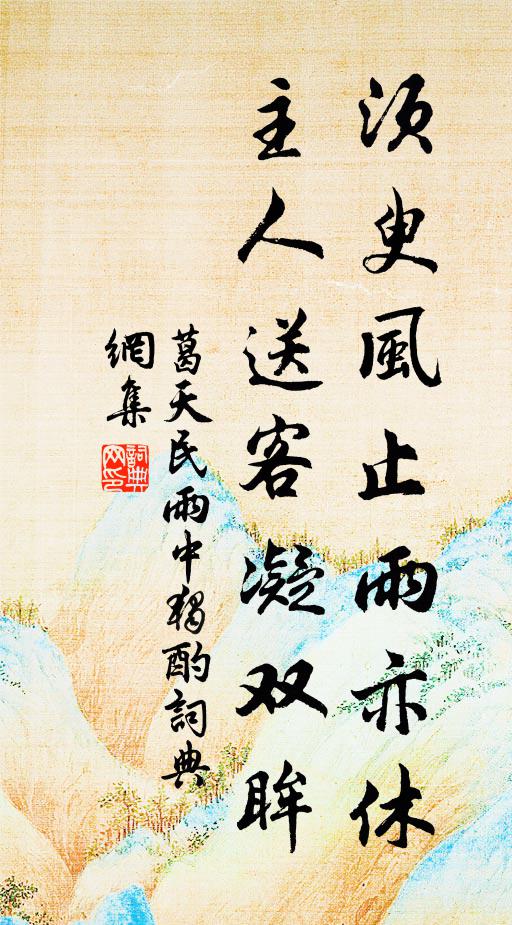 须臾風止雨亦休
主人送客凝双眸
葛天民雨中獨酌詞典
網集
詞典
网印